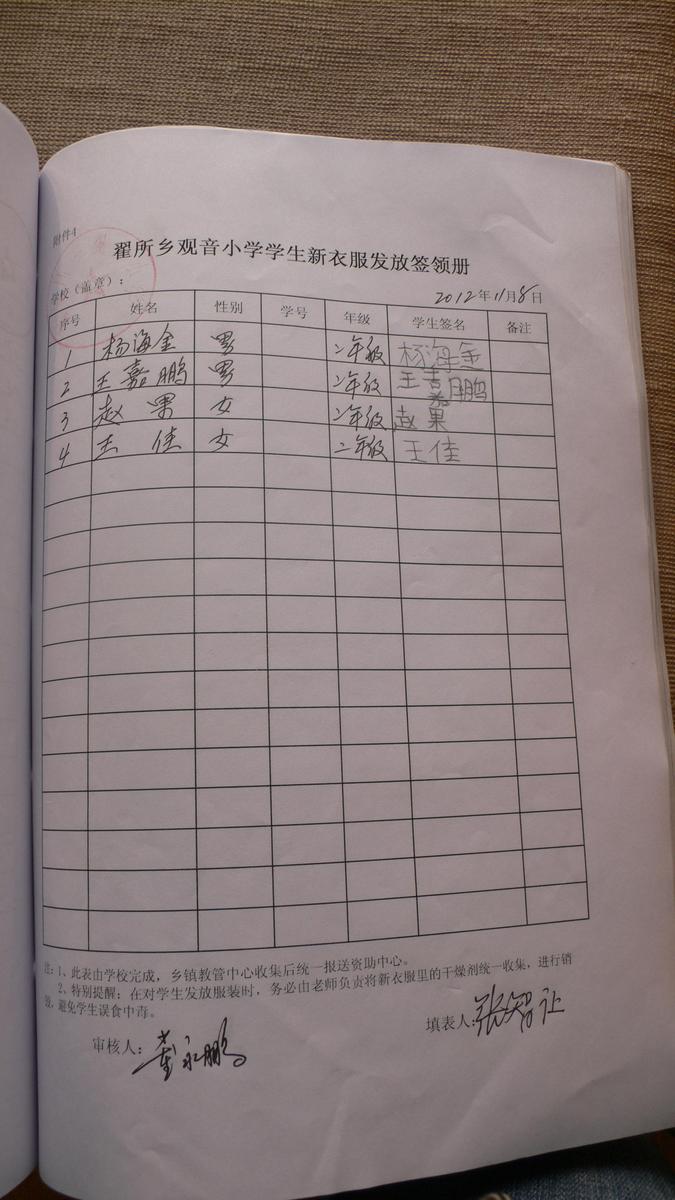 附件4
翟所乡观音小学学生新衣服发放签领册
学校（盖章）： 2012年11月8日
序号 姓名 性别 学号 年级 学生签名 备注
1 杨海金 男 二年级 杨海金
2 王嘉鹏 男 二年级 王嘉鹏
3 赵果 女 二年级 赵果
4 王佳 女 二年级 王佳
注：1、此表由学校完成，乡镇教管中心收集后统一报送资助中心。
2、特别提醒：在对学生发放服装时，务必由老师负责将新衣服里的干燥剂统一收集，进行销
毁，避免学生误食中毒。
审核人：董永鹏 填表人：张智让